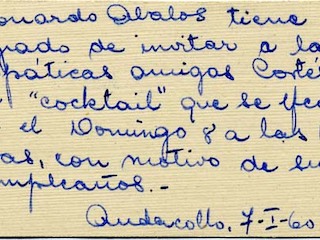 onardo Abalos tiene
grado de invitar a la
páticas amigas Corté
"cocktail" que se efec
el Domingo 8 a las
as, con motivo de su
umpleaños.-
Andacollo, 7-I-60